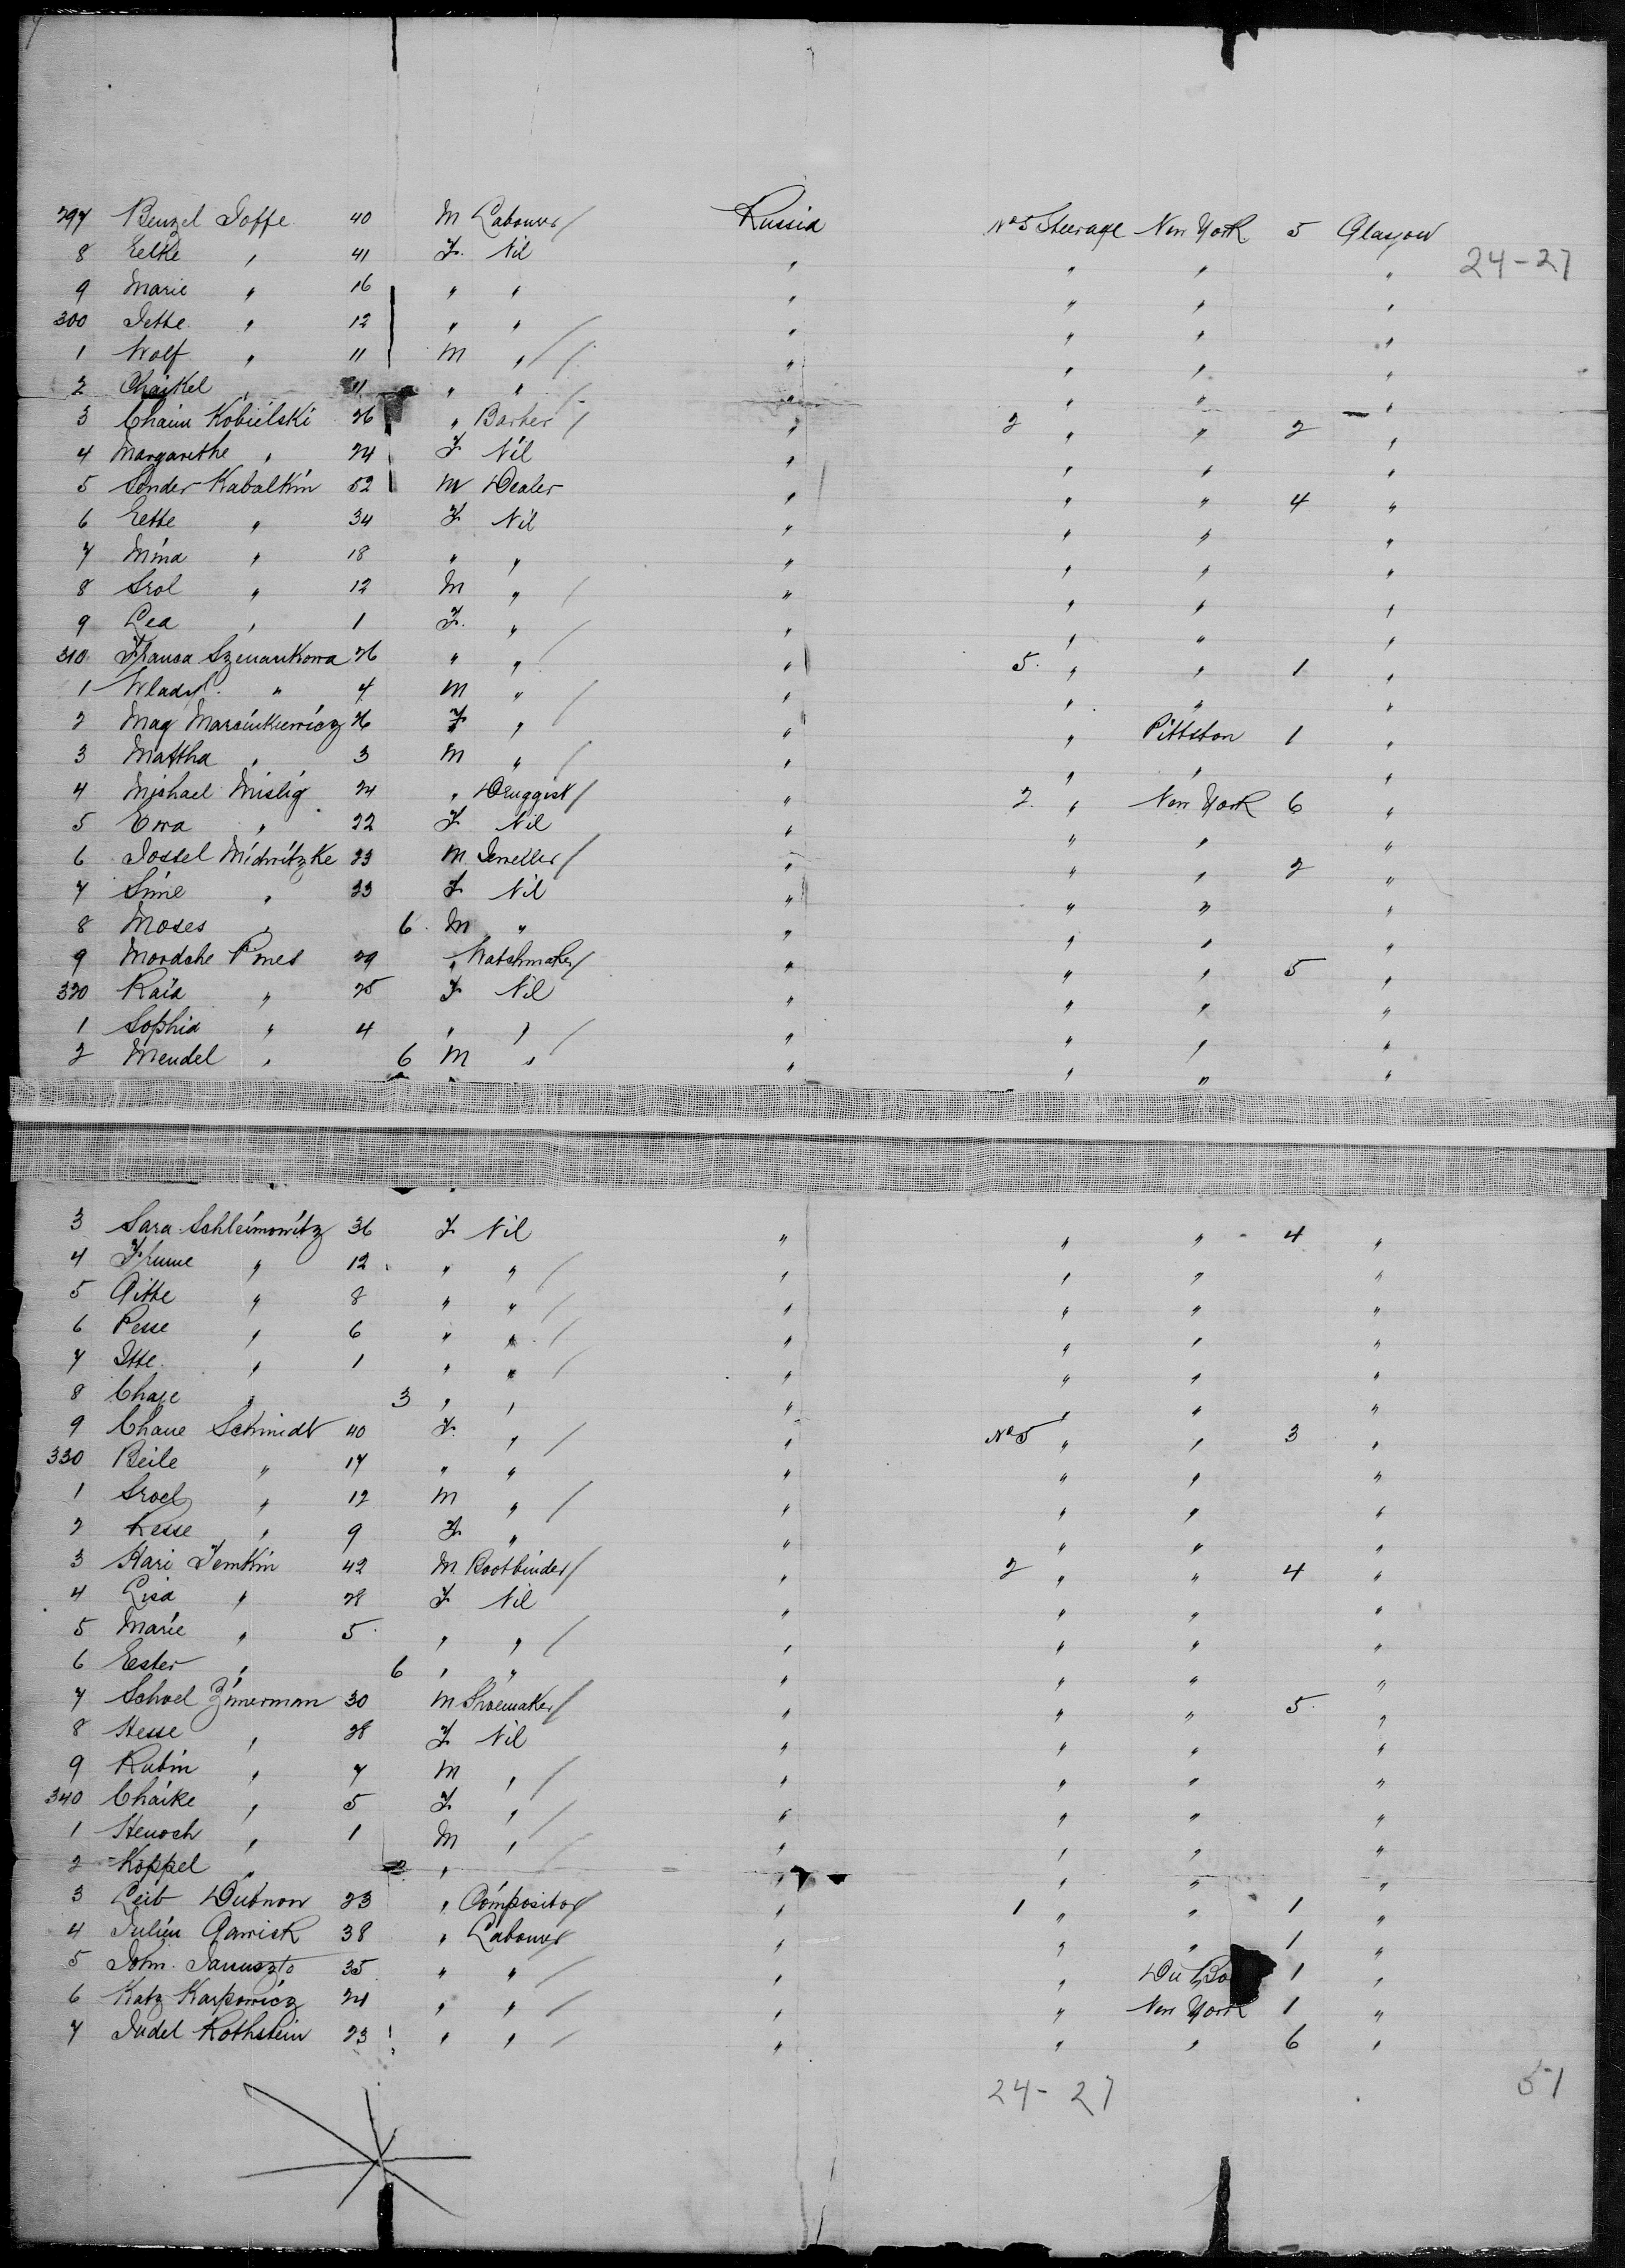 297 Benzel Joffe 40 M Labourer / Russia No 5 Steerage New York 5 Glasgow
24-27
8 Eelke " 41 F. Nil " " " "
9 Marie " 16 " " " " " "
300 Jette " 12 " " / " " " "
1 Wolf " 11 M " / " " " "
2 Chaikel " 11 " " / " " " "
3 Chaim Kobielski 26 " Barber / " 2 " " 2 "
4 Margarethe " 24 F Nil " " " "
5 Sender Kabalkin 52 M Dealer " " " 4 "
6 Eette " 34 F Nil " " " "
7 Mina " 18 " " " " " "
8 Srol " 12 M " / " " " "
9 Lea " 1 F. " / " " " "
310 Franca Szenankowa 26 " " " 5 " " 1 "
1 Wlady. " 4 M " / " " " "
2 Mag Marcinkiewicz 26 F " " " Pittston 1 "
3 Mattha " 3 M " / " " " "
4 Michael Mislig 24 " Druggist / " 2 " New York 6 "
5 Ewa " 22 F Nil " " " "
6 Jossel Midwitzke 33 M Jeweller / " " " 2 "
7 Sime " 33 F Nil " " " "
8 Moses " 6 M " " " " "
9 Mordche Pines 29 " Watchmaker / " " " 5 "
320 Raia " 25 F Nil " " " "
1 Sophia " 4 " " / " " " "
2 Mendel " 6 M " " " " "
3 Sara Schleimowitz 36 F Nil " " " 4 "
4 Frume " 12 " " / " " " "
5 Gitte " 8 " " / " " " "
6 Pesse " 6 " " / " " " "
7 Itte " 1 " " / " " " "
8 Chaje " 3 " " " " " "
9 Chane Schmidt 40 F. " / " No 5 " " 3 "
330 Beile " 17 " " " " " "
1 Sroel " 12 M " / " " " "
2 Kesse " 9 F " " " " "
3 Hari Temkin 42 M Bootbinder / " 2 " " 4 "
4 Lisa " 28 F Nil " " " "
5 Marie " 5 " " / " " " "
6 Eester " 6 " " " " " "
7 Schoel Zimerman 30 M Shoemaker / " " " 5 "
8 Hesse " 28 F Nil " " " "
9 Rubin " 7 M " / " " " "
340 Chaike " 5 F " / " " " "
1 Henoch " 1 M " / " " " "
2 Koppel " 2 " " " " "
3 Leib Dubnow 23 " Compositor / " 1 " " 1 "
4 Julien Gawrisk 38 " Labourer / " " " 1 "
5 John Januszto 35 " " / " " Du Bo 1 "
6 Katz Karpowicz 24 " " / " " New York 1 "
7 Judel Rothstein 23 " " / " " " 6 "
24-27 51